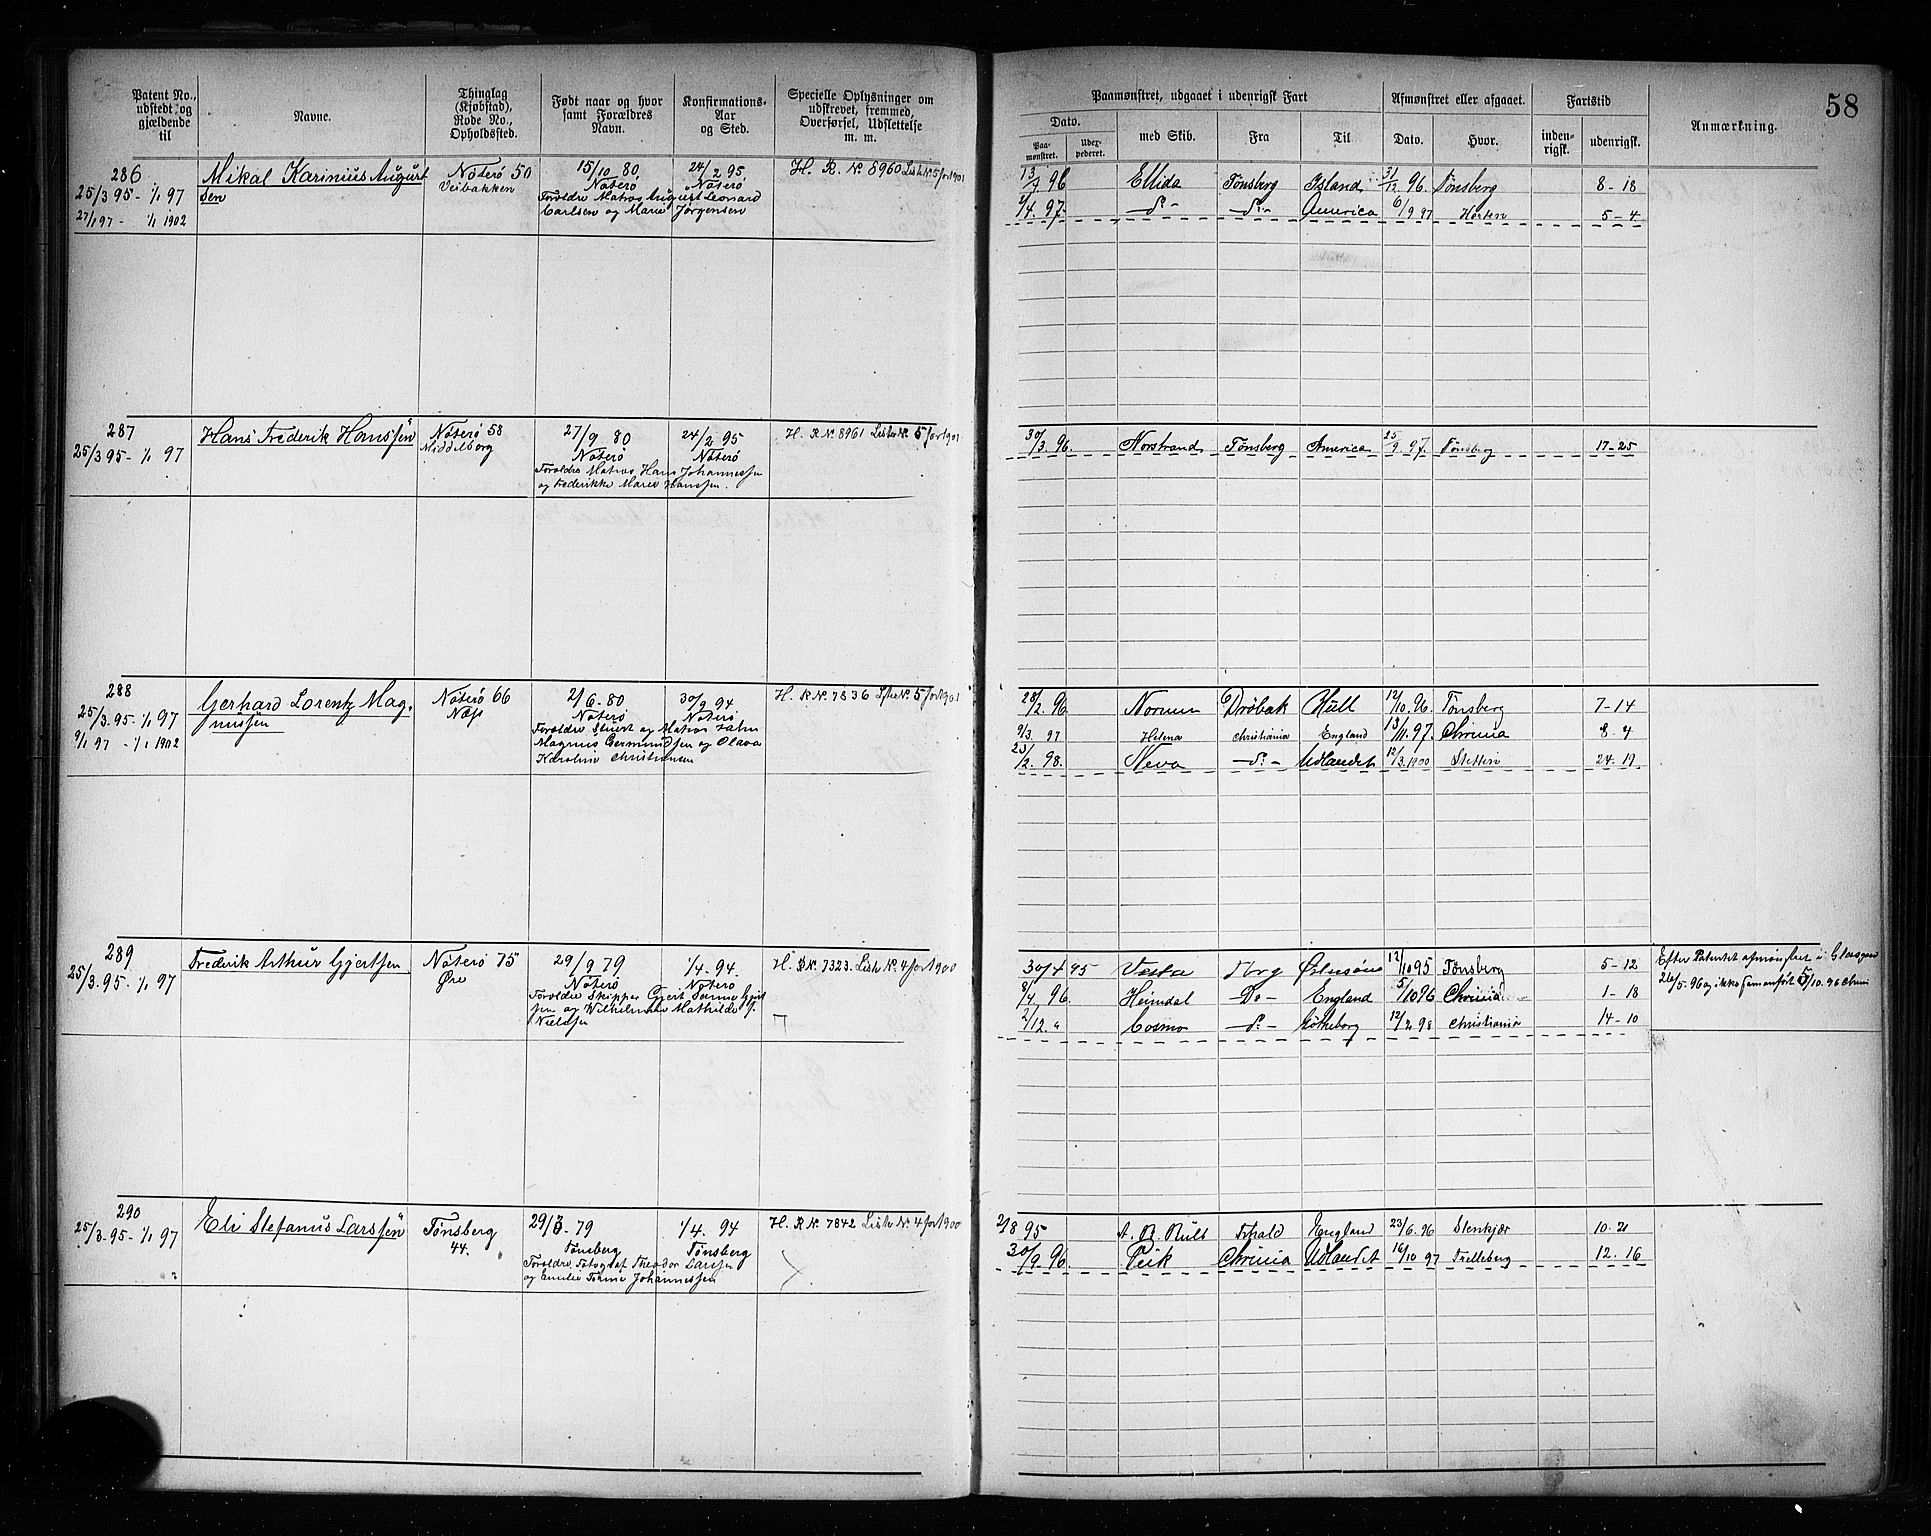 58
Patent No., udstedt og gjældende til
Navne.
Thinglag (Kjøbstad), Rode No., Opholdssted.
Født naar og hvor samt Forældres Navn.
Konfirmations-Aar og Sted.
Specielle Oplysninger om udskrevet, fremmed, Overførsel, Udslettelse m. m.
Paamønstret, udgaaet i udenrigsk Fart
Dato.
Paamønstret.
med Skib.
Fra
Til
Afmønstret eller afgaaet.
Dato.
Hvor.
Fartstid
indenrigsk.
udenrigsk.
Anmærkning.
286
25/3 95 - 1/1 97
27/1 97 - 1/1 1902
Mikal Karinius August
sen
Nøterø 50
Veibakken
15/10 80,
Nøterø
24/2 95,
Nøterø
Foroldre Matros August Leonard
Carlsen og Marie Jørgensen
H. R. No. 8960 Liste No. 5 for 1901
13/7 96 Ellida Tønsberg Island 31/12 96 Tønsberg 8 - 18
/4 97. - d. - - d. - America 6/9 97 Horten 5 - 4
287
25/3 95 - 1/1 97
Hans Frederik Hanssen
Nøterø 58
Middelborg
27/9 80
Nøterø
24/2 95
Nøterø
Foroldre Matros Hans Johannessen
og Frederikke Marie Hanssen.
H. R No. 8961 Liste No. 5 for 1901
30/3 96. Norstrand Tønsberg America 25/9 97. Tønsberg 17 - 25
288
25/3 95 - 1/1 97
9/1 97 - 1/1 1902
Gerhard Lorentz Mag-
nussen
Nøterø 66
Næs
2/6 - 80
Nøterø
30/9 94
Nøterø
Foroldre Stuert og Matros
Magnus Germundsen og Olava
Karoline Christiansen
H. R No. 7836 Liste No. 5 for 1901
28/2. 96 Nornen Drøbak Hull 12/10. 96. Tønsberg 7 - 14
9/3. 97 Helena Christiania England 13/11. 97. Chrania 8 - 4
23/2. 98. Neva - d. - Udlandet 12/3. 1900 Stettin 24. 17
289
25/3 - 95 - 1/1 97
Frederik Arthur Gjertsen
Nøterø 75
Øre
29/9 79
Nøterø
1/4 - 94.
Nøterø
Foroldre Skipper Gjert Gjert
sen og Wilhelmine Mathilde
Nielsen
H. R No. 7323. Liste No. 4 for 1900
30/4 95 Vesta Tbrg 12/10 95 Tønsberg 5 - 12
8/4 96. Heimdal - Do - England 5/10 96 Chrania 1 - 18
2/12 " Cosmo - d. - Gøtheborg 12/2 98 Christiania 14 - 10
Efter Patentet afmønstret i Glasgow
26/5 - 96 og ikke Samenført 5/10. 96 Chnia
290
25/3 - 95 - 1/1 97
Eli Stefanus Larssen
Tønsberg
44.
29/3 - 79
Tønsberg
1/4. 94
Tønsberg
Foroldre Fotograf Theodor Larssen
og Emilie Johannessen
H. R No. 7842 Liste No. 4 for 1900
2/8 95 A. B. Bull Fhald England 23/6. 96 Stenkjær 10 - 21
30/9. 96. Peik Chrania Udlandet 16/10 97 Trelleborg 12. 16